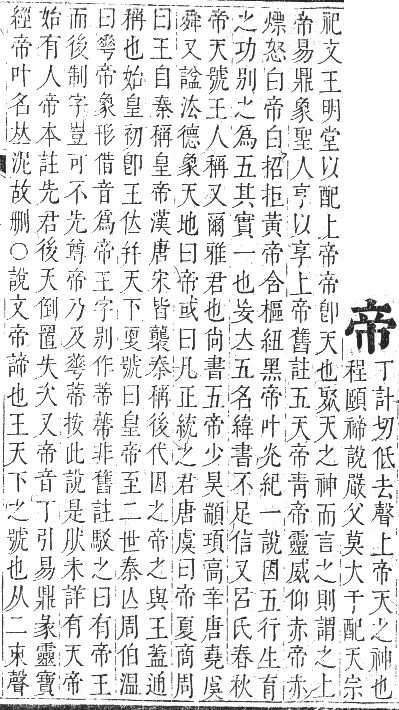 帝
丁計切低去聲上帝天之神也
程頤禘說嚴父莫大于配天宗
祀文王明堂以配上帝帝卽天也聚天之神而言之則謂之上
帝易鼎象聖人亨以享上帝舊註五天帝靑帝靈威仰赤帝赤
熛怒白帝白招拒黃帝含樞紐黑帝叶光紀一說因五行生育
之功別之為五其實一也妄立五名緯書不足信又呂氏春秋
帝天號王人稱又爾雅君也尙書五帝少昊顓頊高辛唐堯虞
舜又諡法德象天地曰帝或曰凡正統之君唐虞曰帝夏商周
曰王自秦稱皇帝漢唐宋皆襲秦稱後代因之帝之與王蓋通
稱也始皇初卽王位幷天下更號曰皇帝至二世秦亾周伯溫
曰萼帝象形借音爲帝王字別作蒂蔕非舊註駁之曰有帝王
而後制字豈可不先尊帝乃及萼蒂按此說是肰未詳有天帝
始有人帝本註先君後天倒置失矢又帝音丁引易鼎彖靈寶
經帝叶名丛泥故刪○說文帝諦也王天下之號也从二朿聲